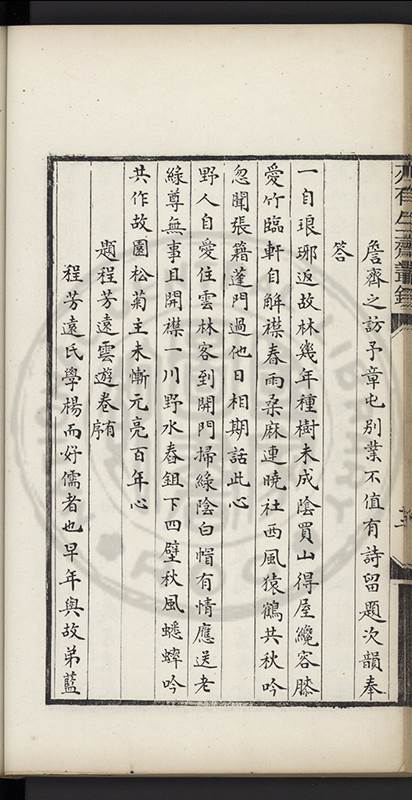 詹齊之訪予章屯別業不值有詩留題次韻奉
答
一自琅琊返故林幾年種樹未成陰買山得屋纔容膝
愛竹臨軒自解襟春雨桑麻連曉社西風猿鶴共秋吟
忽聞張籍蓬門過他日相期話此心
野人自愛住雲林客到開門掃綠陰白帽有情應送老
綠尊無事且開襟一川野水春鉏下四壁秋風蟋蟀吟
共作故園松菊主未慚元亮百年心
題程芳遠雲遊卷有序
程芳遠氏學楊而好儒者也早年與故弟藍